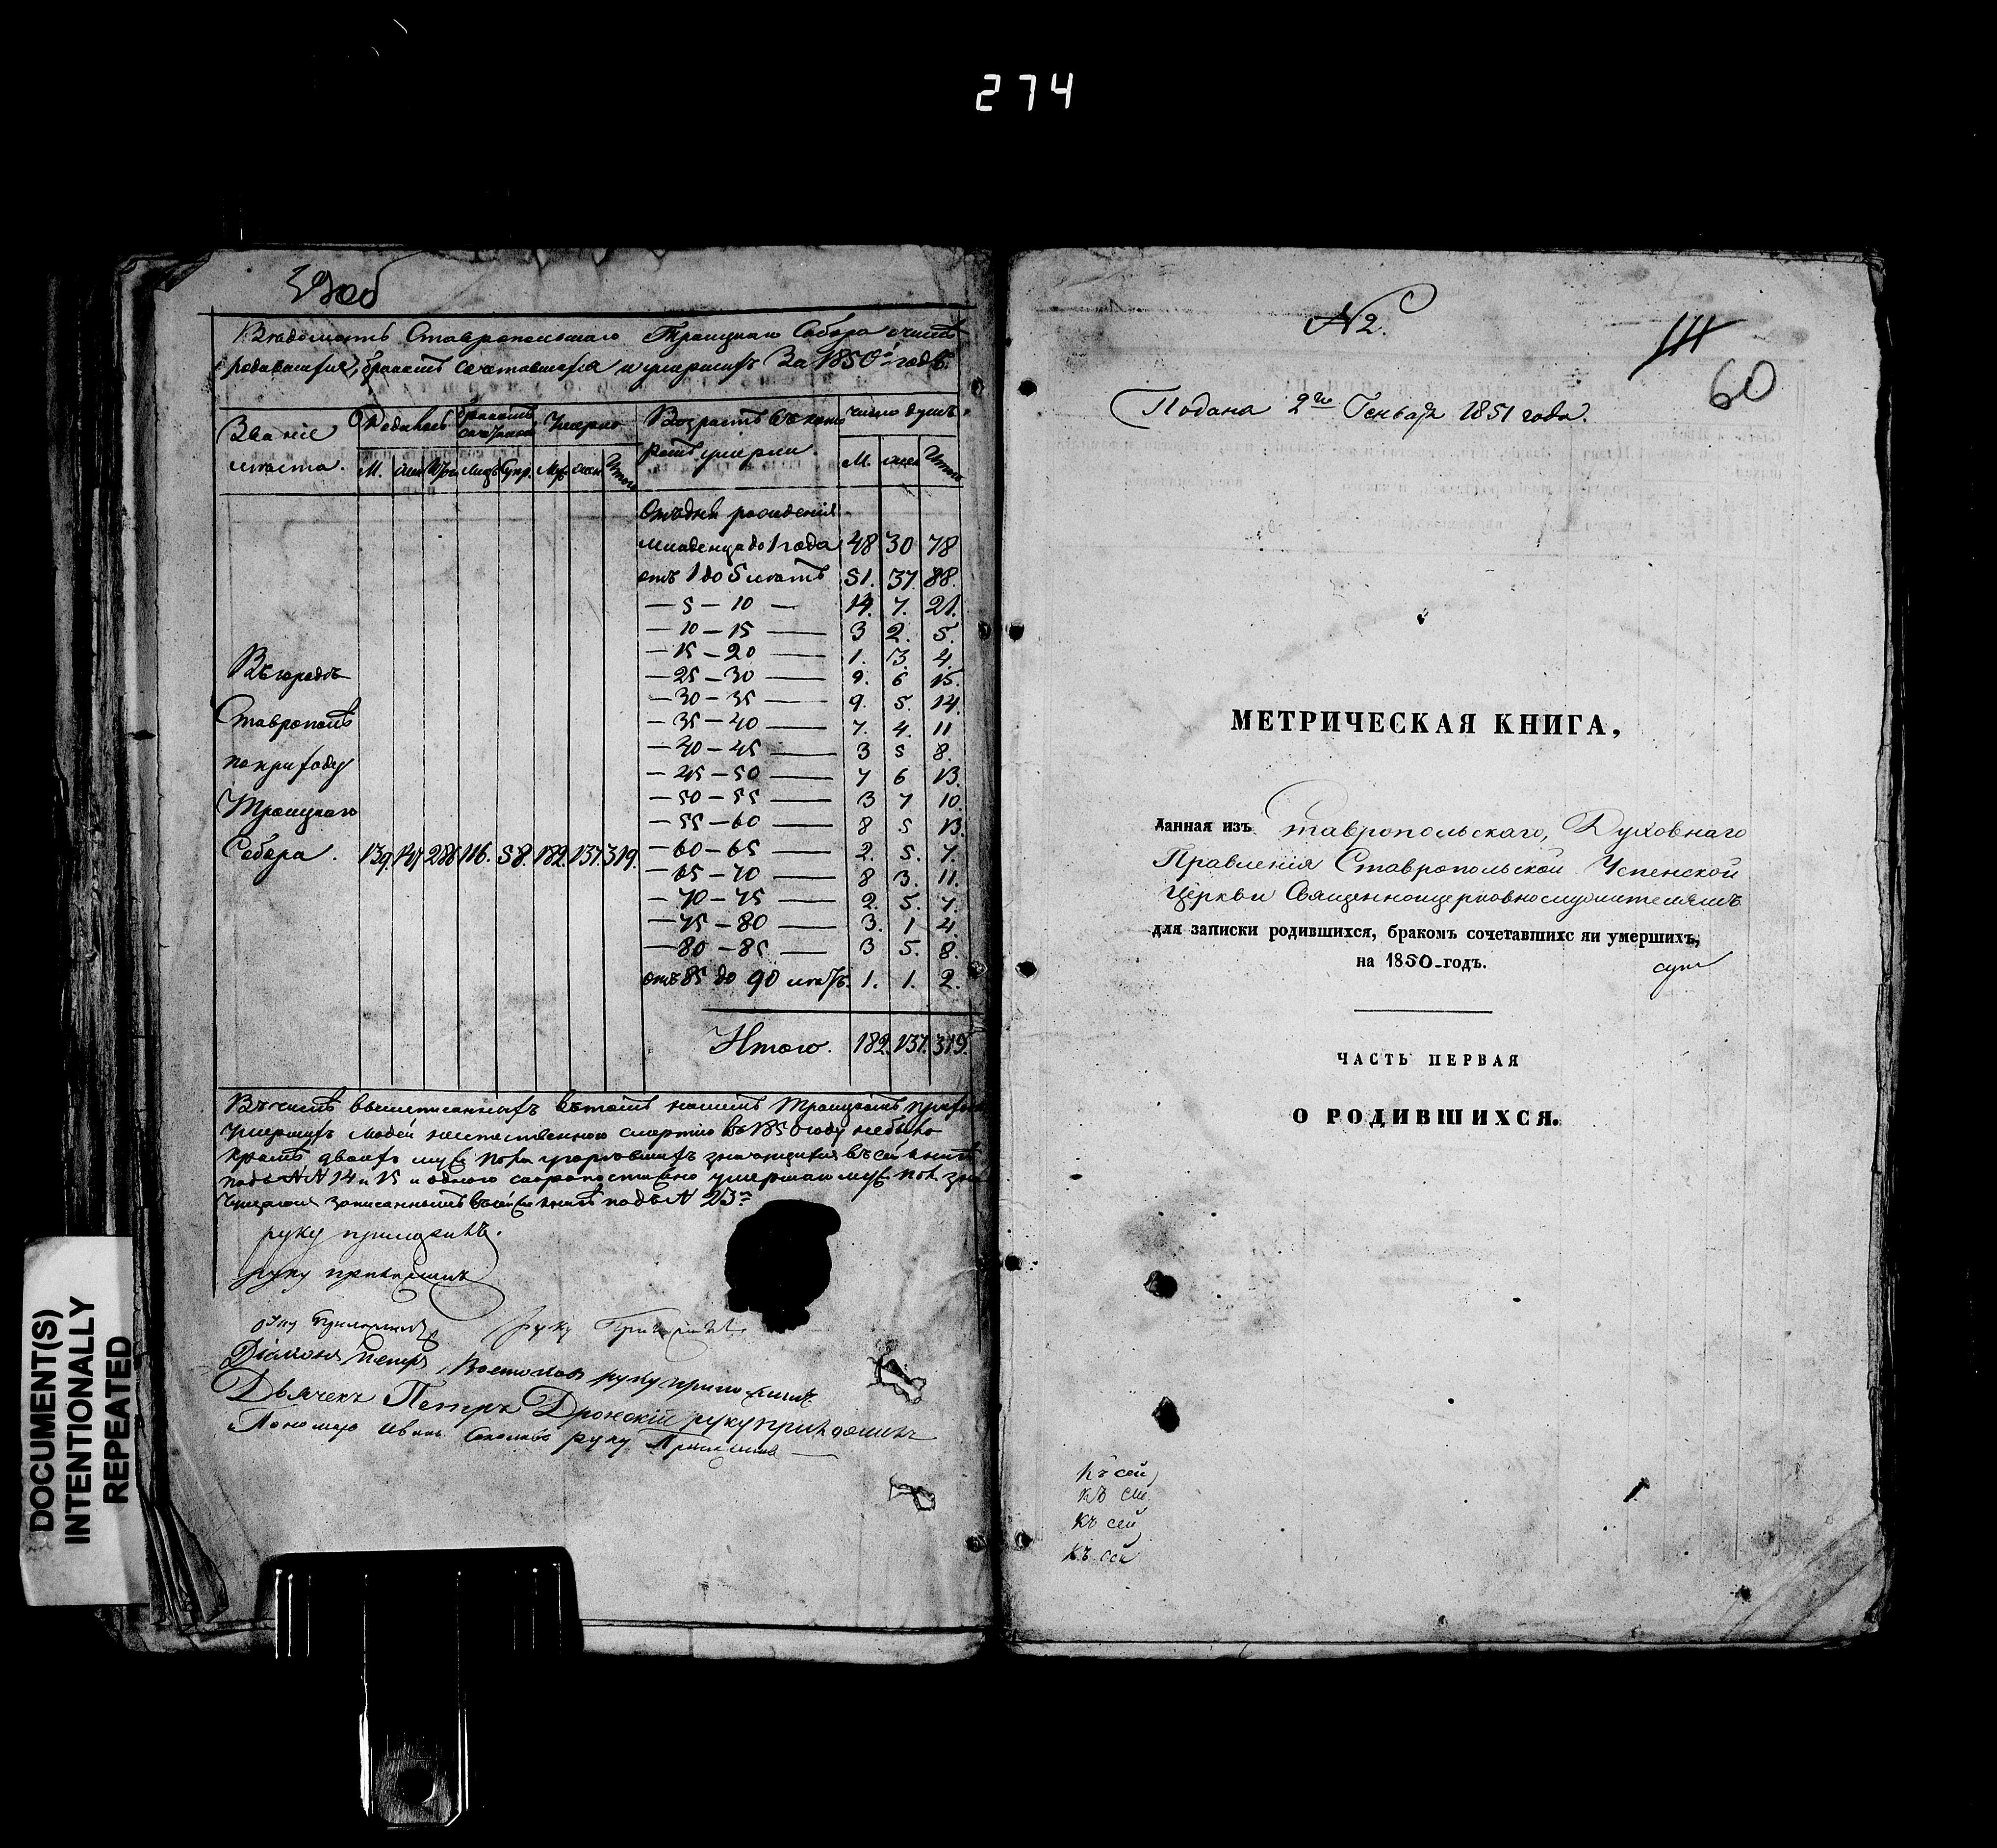 274
59об
Вѣдомость Ставропольскаго Троицкаго Собора о числѣ
родившихся, бракомъ сочетавшихся и умершихъ За 1850й годъ.
Званіе Родилось бракомъ сочетано Умерло Возрастъ въ кото число душъ.
мѣста. М. жен Итого лицъ Супр. Муж жен Итого ромъ умерли. М. жен Итого
Отъ дня рожденія
младенца до 1 года 48 30 78
отъ 1 до 5 лѣтъ 51. 37. 88.
— 5 — 10 — 14. 7. 21.
— 10 — 15 — 3 2. 5.
— 15 — 20 — 1. 3. 4.
Въ городѣ — 25 — 30 — 9. 6 15.
— 30 — 35 — 9. 5. 14.
Ставрополѣ — 35 — 40 — 7. 4. 11
— 40 — 45 — 3 5 8.
по приходу — 45 — 50 — 7 6 13.
— 50 — 55 — 3 7 10.
Троицкаго — 55 — 60 — 8 5 13.
Собора. 139. 147 286 116. 58. 182. 137. 319. — 60 — 65 — 2. 5. 7.
— 65 — 70 — 8 3. 11.
— 70 — 75 — 2. 5. 7.
— 75 — 80 — 3. 1 4.
— 80 — 85 — 3 5. 8.
отъ 85 до 90 лѣтъ. 1. 1. 2.
Итого. 182. 137. 319.
Въ числѣ вышеписанныхъ въ томъ нашемъ Троицкомъ
Умершихъ людей неестественною смертію въ 1850 году небыло
кромѣ двоихъ муж пола угорѣвшихъ значущихся въ сей книгѣ
подъ №№ 14 и 15 и одного скоропостижно умершаго муж пол
записаннымъ въ сей книгѣ подъ № 23м
руку приложилъ.
руку приложилъ
руку приложилъ руку Приложилъ
Діаконъ Петръ Востоковъ руку приложилъ
Дьячекъ Петръ Дронскій руку приложилъ
Пономарь Иванъ Соколовъ руку Приложилъ
DOCUMENT(S)
INTENTIONALLY
REPEATED
№ 2.
60
Подана 2го Генваря 1851 года.
МЕТРИЧЕСКАЯ КНИГА,
данная изъ Ставропольскаго, Духовнаго
Правленія Ставропольской Успенской
Церкви Священноцерковнослужителямъ
для записки родившихся, бракомъ сочетавшихс яи умершихъ,
на 1850-годъ.
ЧАСТЬ ПЕРВАЯ
О РОДИВШИХСЯ.
Къ сей
къ сей
къ сей
къ сей